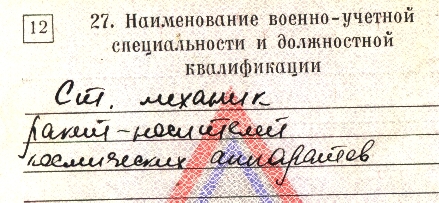 12
27. Наименование военно-учетной
специальности и должностной
квалификации
Ст. механик
ракет-носителей
космических аппаратов